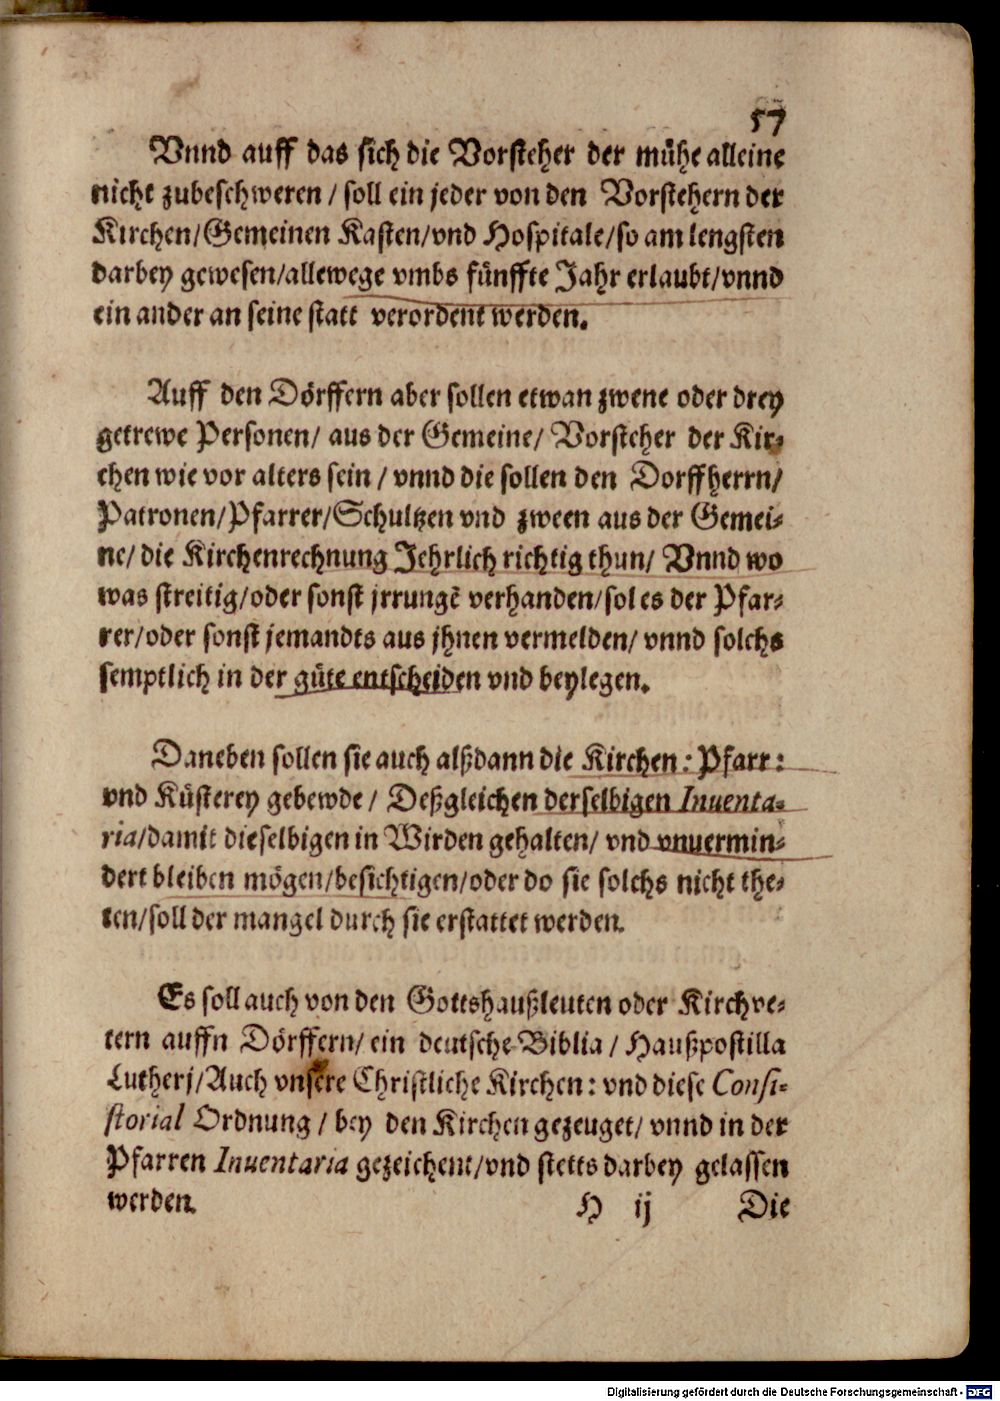 57
Vnnd auff das sich die Vorsteher der mühe alleine
nicht zubeschweren / soll ein jeder von den Vorstehern der
Kirchen/Gemeinen Kasten/vnd Hospitale/so am lengsten
darbey gewesen/allewege vmbs fünffte Jahr erlaubt/vnnd
ein ander an seine statt verordent werden.
Auff den Dörffern aber sollen etwan zwene oder drey
getrewe Personen/ aus der Gemeine/ Vorsteher der Kir-
chen wie vor alters sein / vnnd die sollen den Dorffherrn/
Patronen/Pfarrer/Schultzen vnd zween aus der Gemei-
ne/ die Kirchenrechnung Jehrlich richtig thun/ Vnnd wo
was streitig/oder sonst jrrungē verhanden/sol es der Pfar-
rer/oder sonst jemandts aus jhnen vermelden/ vnnd solchs
semptlich in der güte entscheiden vnd beylegen.
Daneben sollen sie auch alßdann die Kirchen: Pfarr:
vnd Küsterey gebewde / Deßgleichen derselbigen Inuenta-
ria/damit dieselbigen in Wirden gehalten/ vnd vnuermin-
dert bleiben mögen/besichtigen/oder do sie solchs nicht the-
ten/soll der mangel durch sie erstattet werden.
Es soll auch von den Gottshaußleuten oder Kirchve-
tern auffn Dörffern/ ein deutsche Biblia / Haußpostilla
Lutherj/Auch vnsere Christliche Kirchen: vnd diese Consi-
storial Ordnung / bey den Kirchen gezeuget/ vnnd in der
Pfarren Inuentaria gezeichent/vnd stetts darbey gelassen
werden.
H ij Die
Digitalisierung gefördert durch die Deutsche Forschungsgemeinschaft - DFG